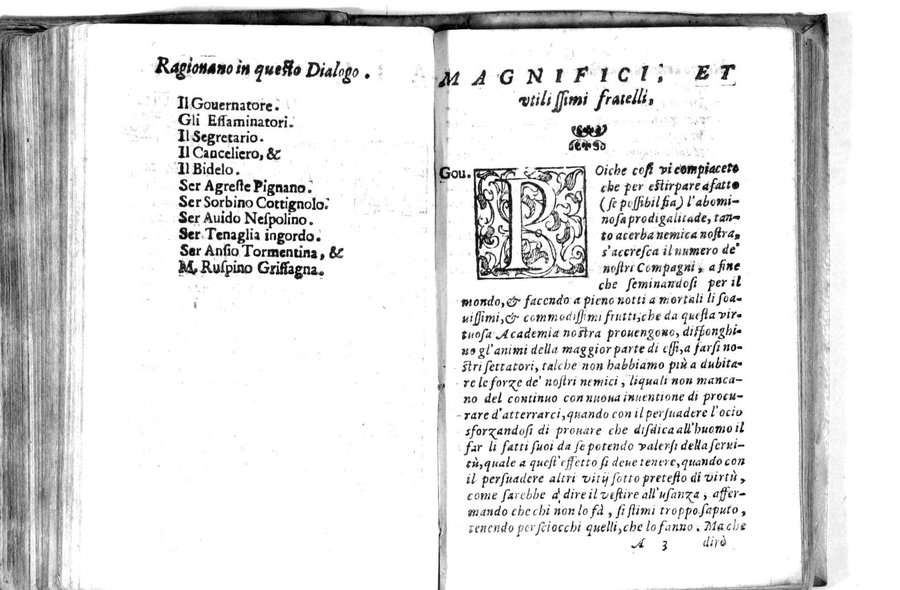 Ragionano in questo Dialogo.
Il Gouernatore.
Gli Essaminatori.
Il Segretario.
Il Canceliero, &
Il Bidelo.
Ser Agreste Pignano.
Ser Sorbino Cottignolo.
Ser Auido Nespolino.
Ser Tenaglia ingordo.
Ser Ansio Tormentina, &
M. Ruspino Griffagna.
MAGNIFICI, ET
vtilissimi fratelli,
Gou. POiche cosi vi compiacete
che per estirpare afatto
(se possibil sia) l'abomi-
nosa prodigalitade, tan-
to acerba nemica nostra,
s'accresca il numero de'
nostri Compagni, a fine
che seminandosi per il
mondo, & facendo a pieno notti a mortali li soa-
uissimi, & commodissimi frutti, che da questa vir-
tuosa Academia nostra prouengono, disponghi-
no gl'animi della maggior parte di essi, a farsi no-
stri settatori, talche non habbiamo più a dubita-
re le forze de' nostri nemici, liquali non manca-
no del continuo con nuoua inuentione di procu-
rare d'atterrarci, quando con il persuadere l'ocio
sforzandosi di prouare che disdica all'huomo il
far li fatti suoi da se potendo valersi della serui-
tù, quale a quest'effetto si deue tenere, quando con
il persuadere altri vitij sotto pretesto di virtù,
come sarebbe a dire il vestire all'vsanza, affer-
mando che chi non lo fà, si stimi troppo saputo,
tenendo per sciocchi quelli, che lo fanno. Ma che
A 3 dirò